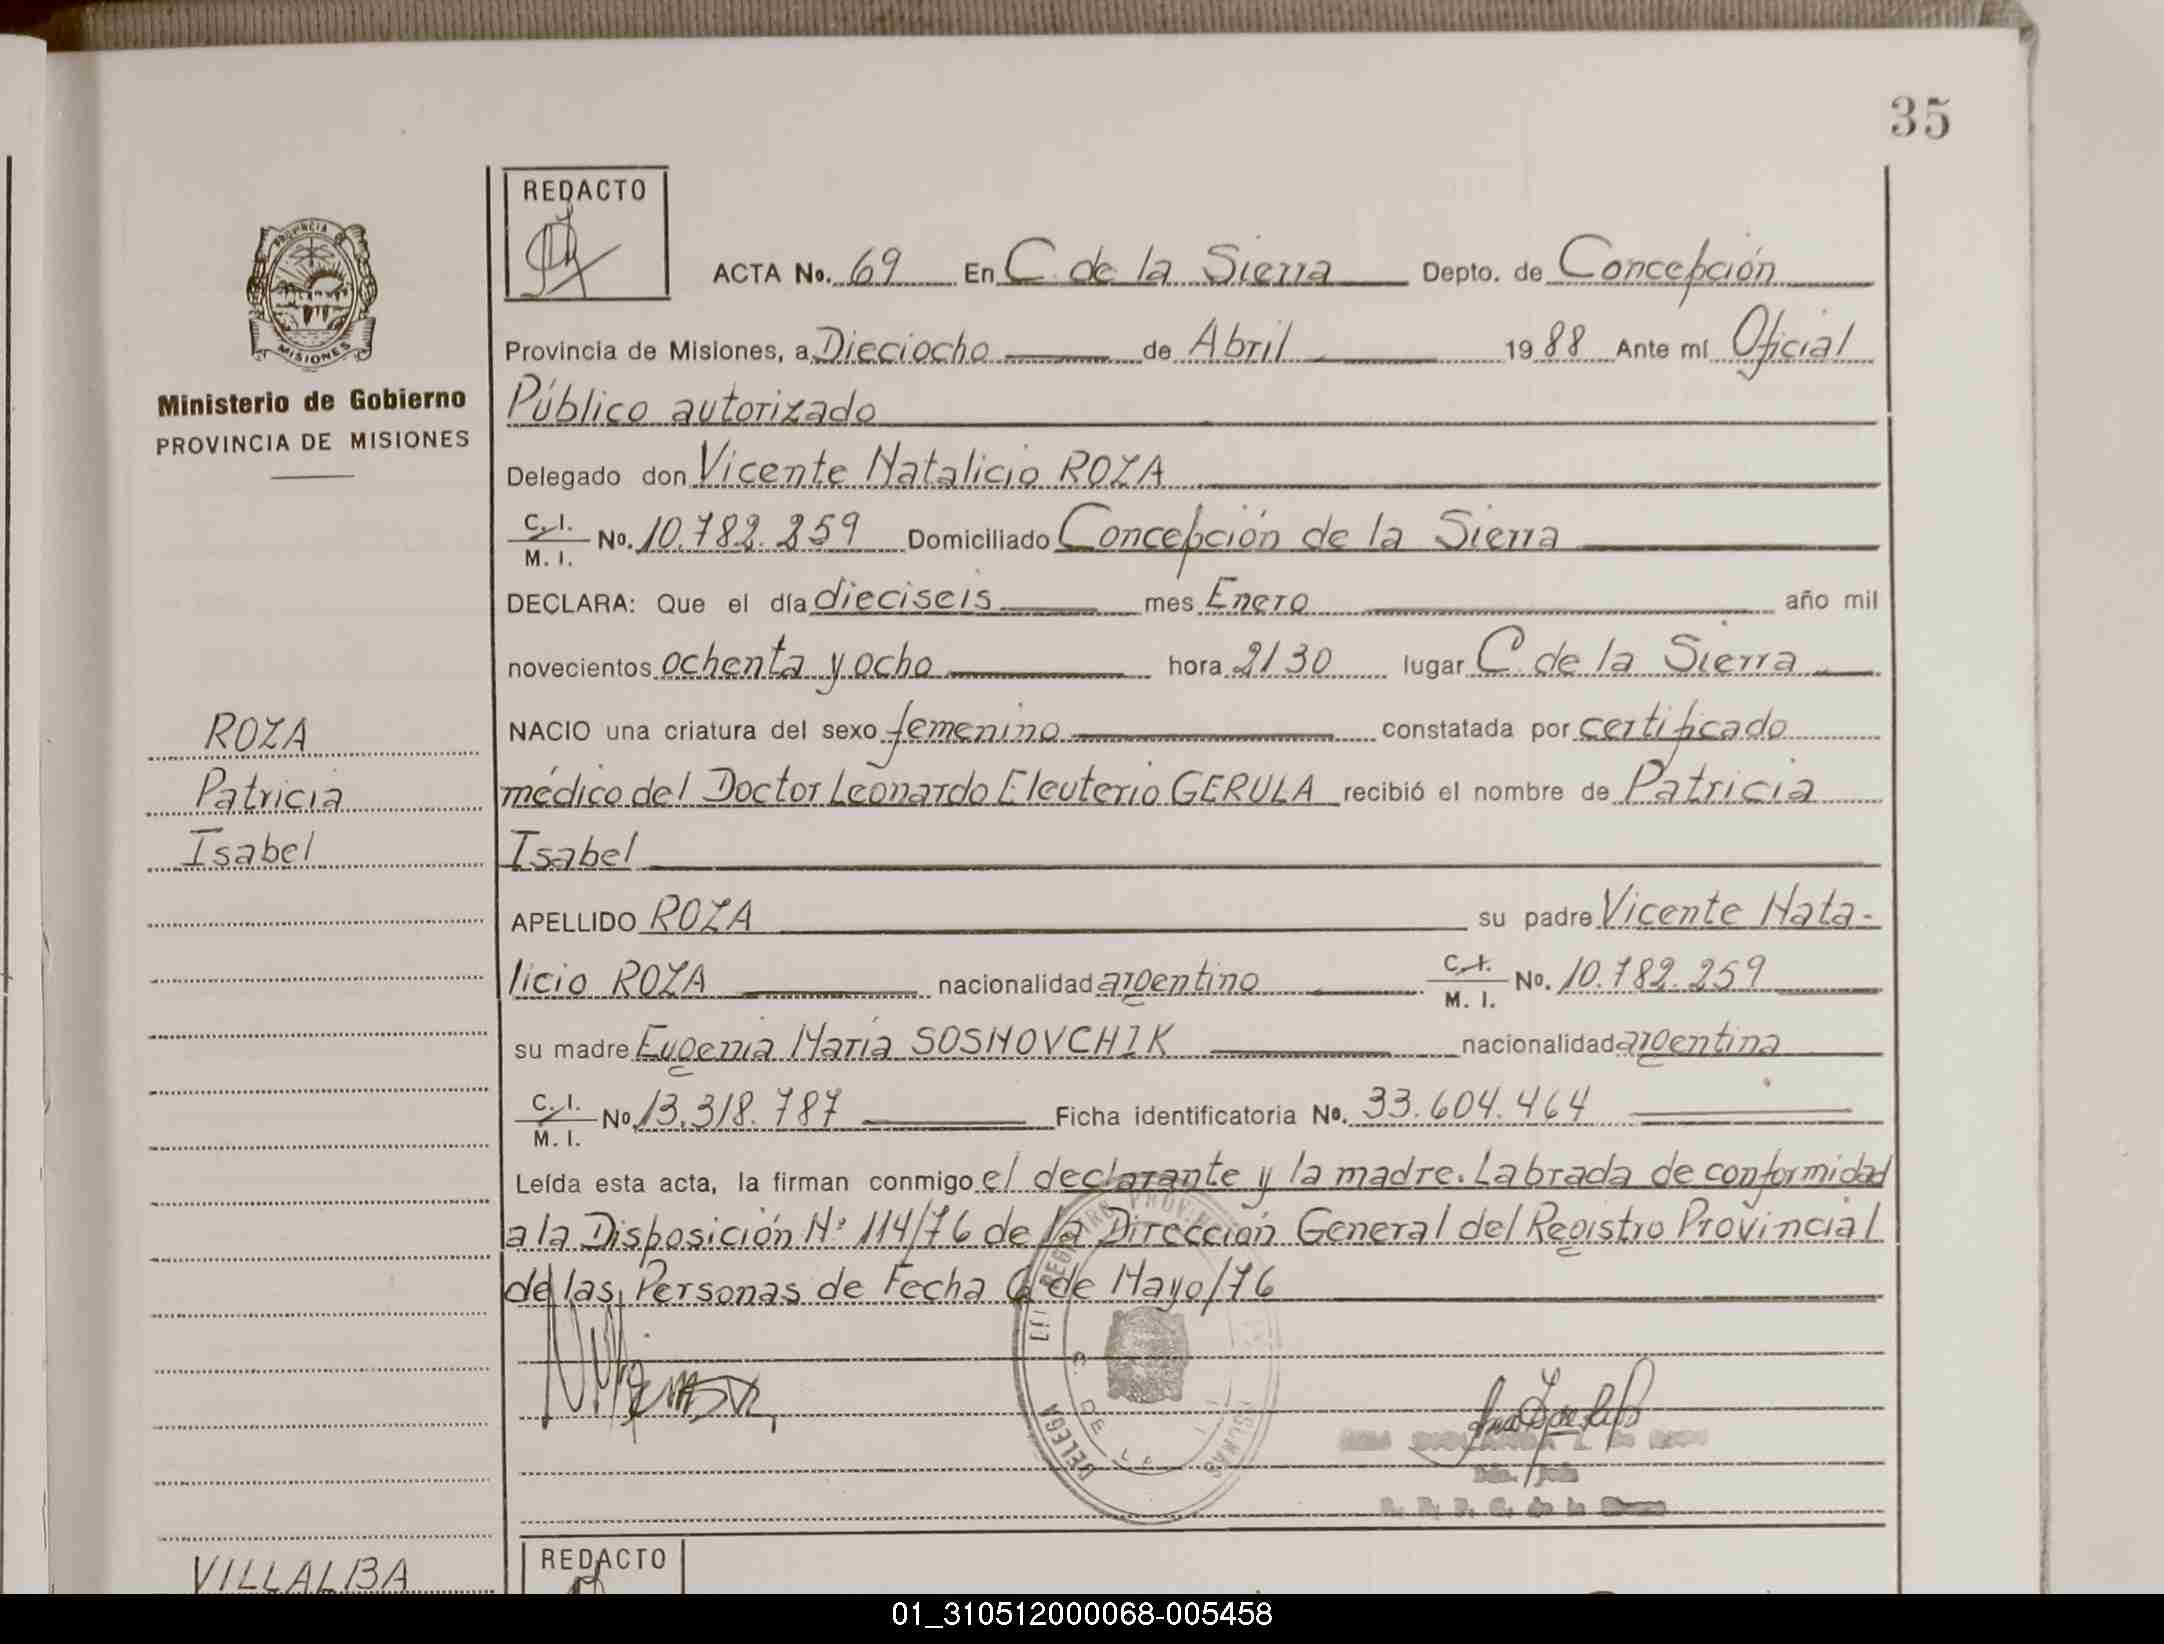 35
REDACTO
ACTA No. 69 En C. de la Sierra Depto. de Concepción
PROVINCIA
MISIONES
Provincia de Misiones, a Dieciocho de Abril 1988 Ante mí Oficial
Ministerio de Gobierno
PROVINCIA DE MISIONES
Público autorizado
Delegado don Vicente Natalicio ROZA
C. I.
M. I. No. 10.782.259 Domiciliado Concepción de la Sierra
DECLARA: Que el día dieciseis mes Enero año mil
novecientos ochenta y ocho hora 2130 lugar C. de la Sierra
ROZA
Patricia
Isabel
NACIO una criatura del sexo femenino constatada por certificado
médico del Doctor Leonardo Eleuterio GERULA recibió el nombre de Patricia
Isabel
APELLIDO ROZA su padre Vicente Nata-
licio ROZA nacionalidad argentino C. I. M. I. No. 10.782.259
su madre Eugenia María SOSNOVCHIK nacionalidad argentina
C. I.
M. I. No. 13.318.787 Ficha identificatoria No. 33.604.464
Leída esta acta, la firman conmigo el declarante y la madre. Labrada de conformidad
a la Disposición Nº 114/76 de la Dirección General del Registro Provincial
de las Personas de Fecha 6 de Mayo/76
DELEGA
VILLALBA
REDACTO
01_310512000068-005458